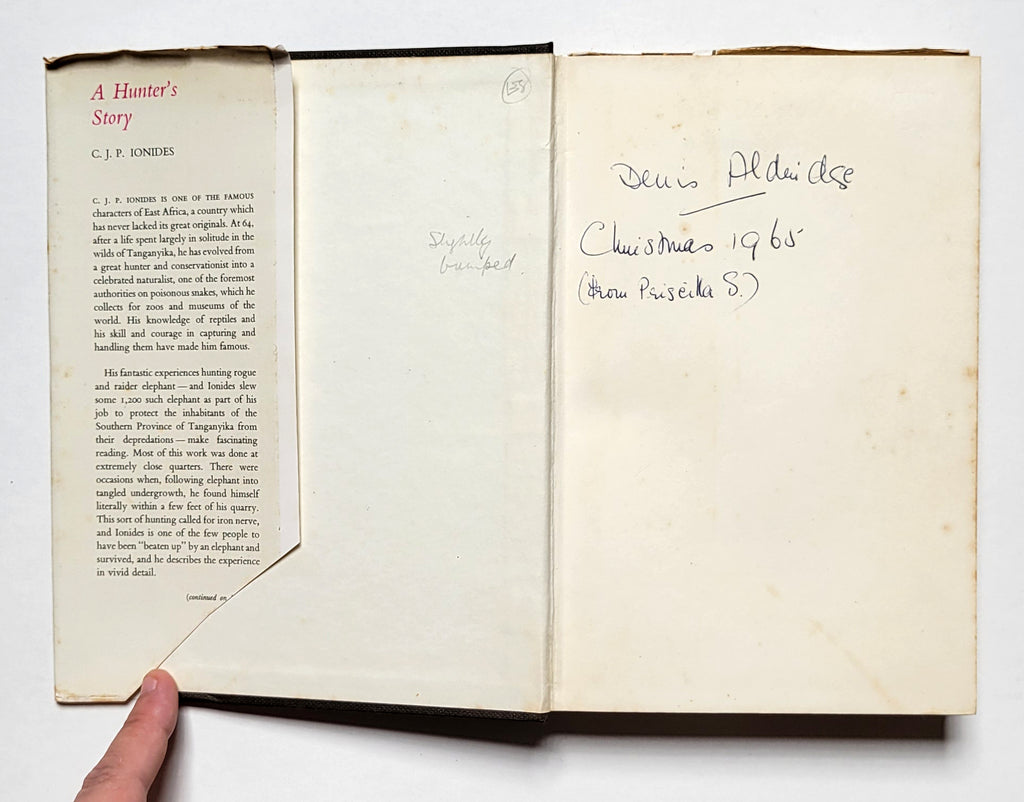 A Hunter's
Story
C. J. P. IONIDES
C. J. P. IONIDES IS ONE OF THE FAMOUS
characters of East Africa, a country which
has never lacked its great originals. At 64,
after a life spent largely in solitude in the
wilds of Tanganyika, he has evolved from
a great hunter and conservationist into a
celebrated naturalist, one of the foremost
authorities on poisonous snakes, which he
collects for zoos and museums of the
world. His knowledge of reptiles and
his skill and courage in capturing and
handling them have made him famous.
His fantastic experiences hunting rogue
and raider elephant — and Ionides slew
some 1,200 such elephant as part of his
job to protect the inhabitants of the
Southern Province of Tanganyika from
their depredations — make fascinating
reading. Most of this work was done at
extremely close quarters. There were
occasions when, following elephant into
tangled undergrowth, he found himself
literally within a few feet of his quarry.
This sort of hunting called for iron nerve,
and Ionides is one of the few people to
have been "beaten up" by an elephant and
survived, and he describes the experience
in vivid detail.
(continued on
Slightly
bumped.
Denis Aldridge
Christmas 1965
(from Priscilla S.)